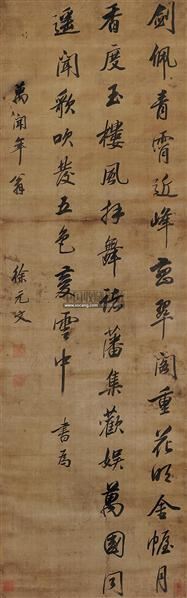 劍佩青霄近峰高翠閣重花明金幄月
香度玉樓風拜舞諸藩集歡娛萬國同
遙聞歌吹發五色慶雲中 書為
萬聞年翁
徐元文
www.socang.com